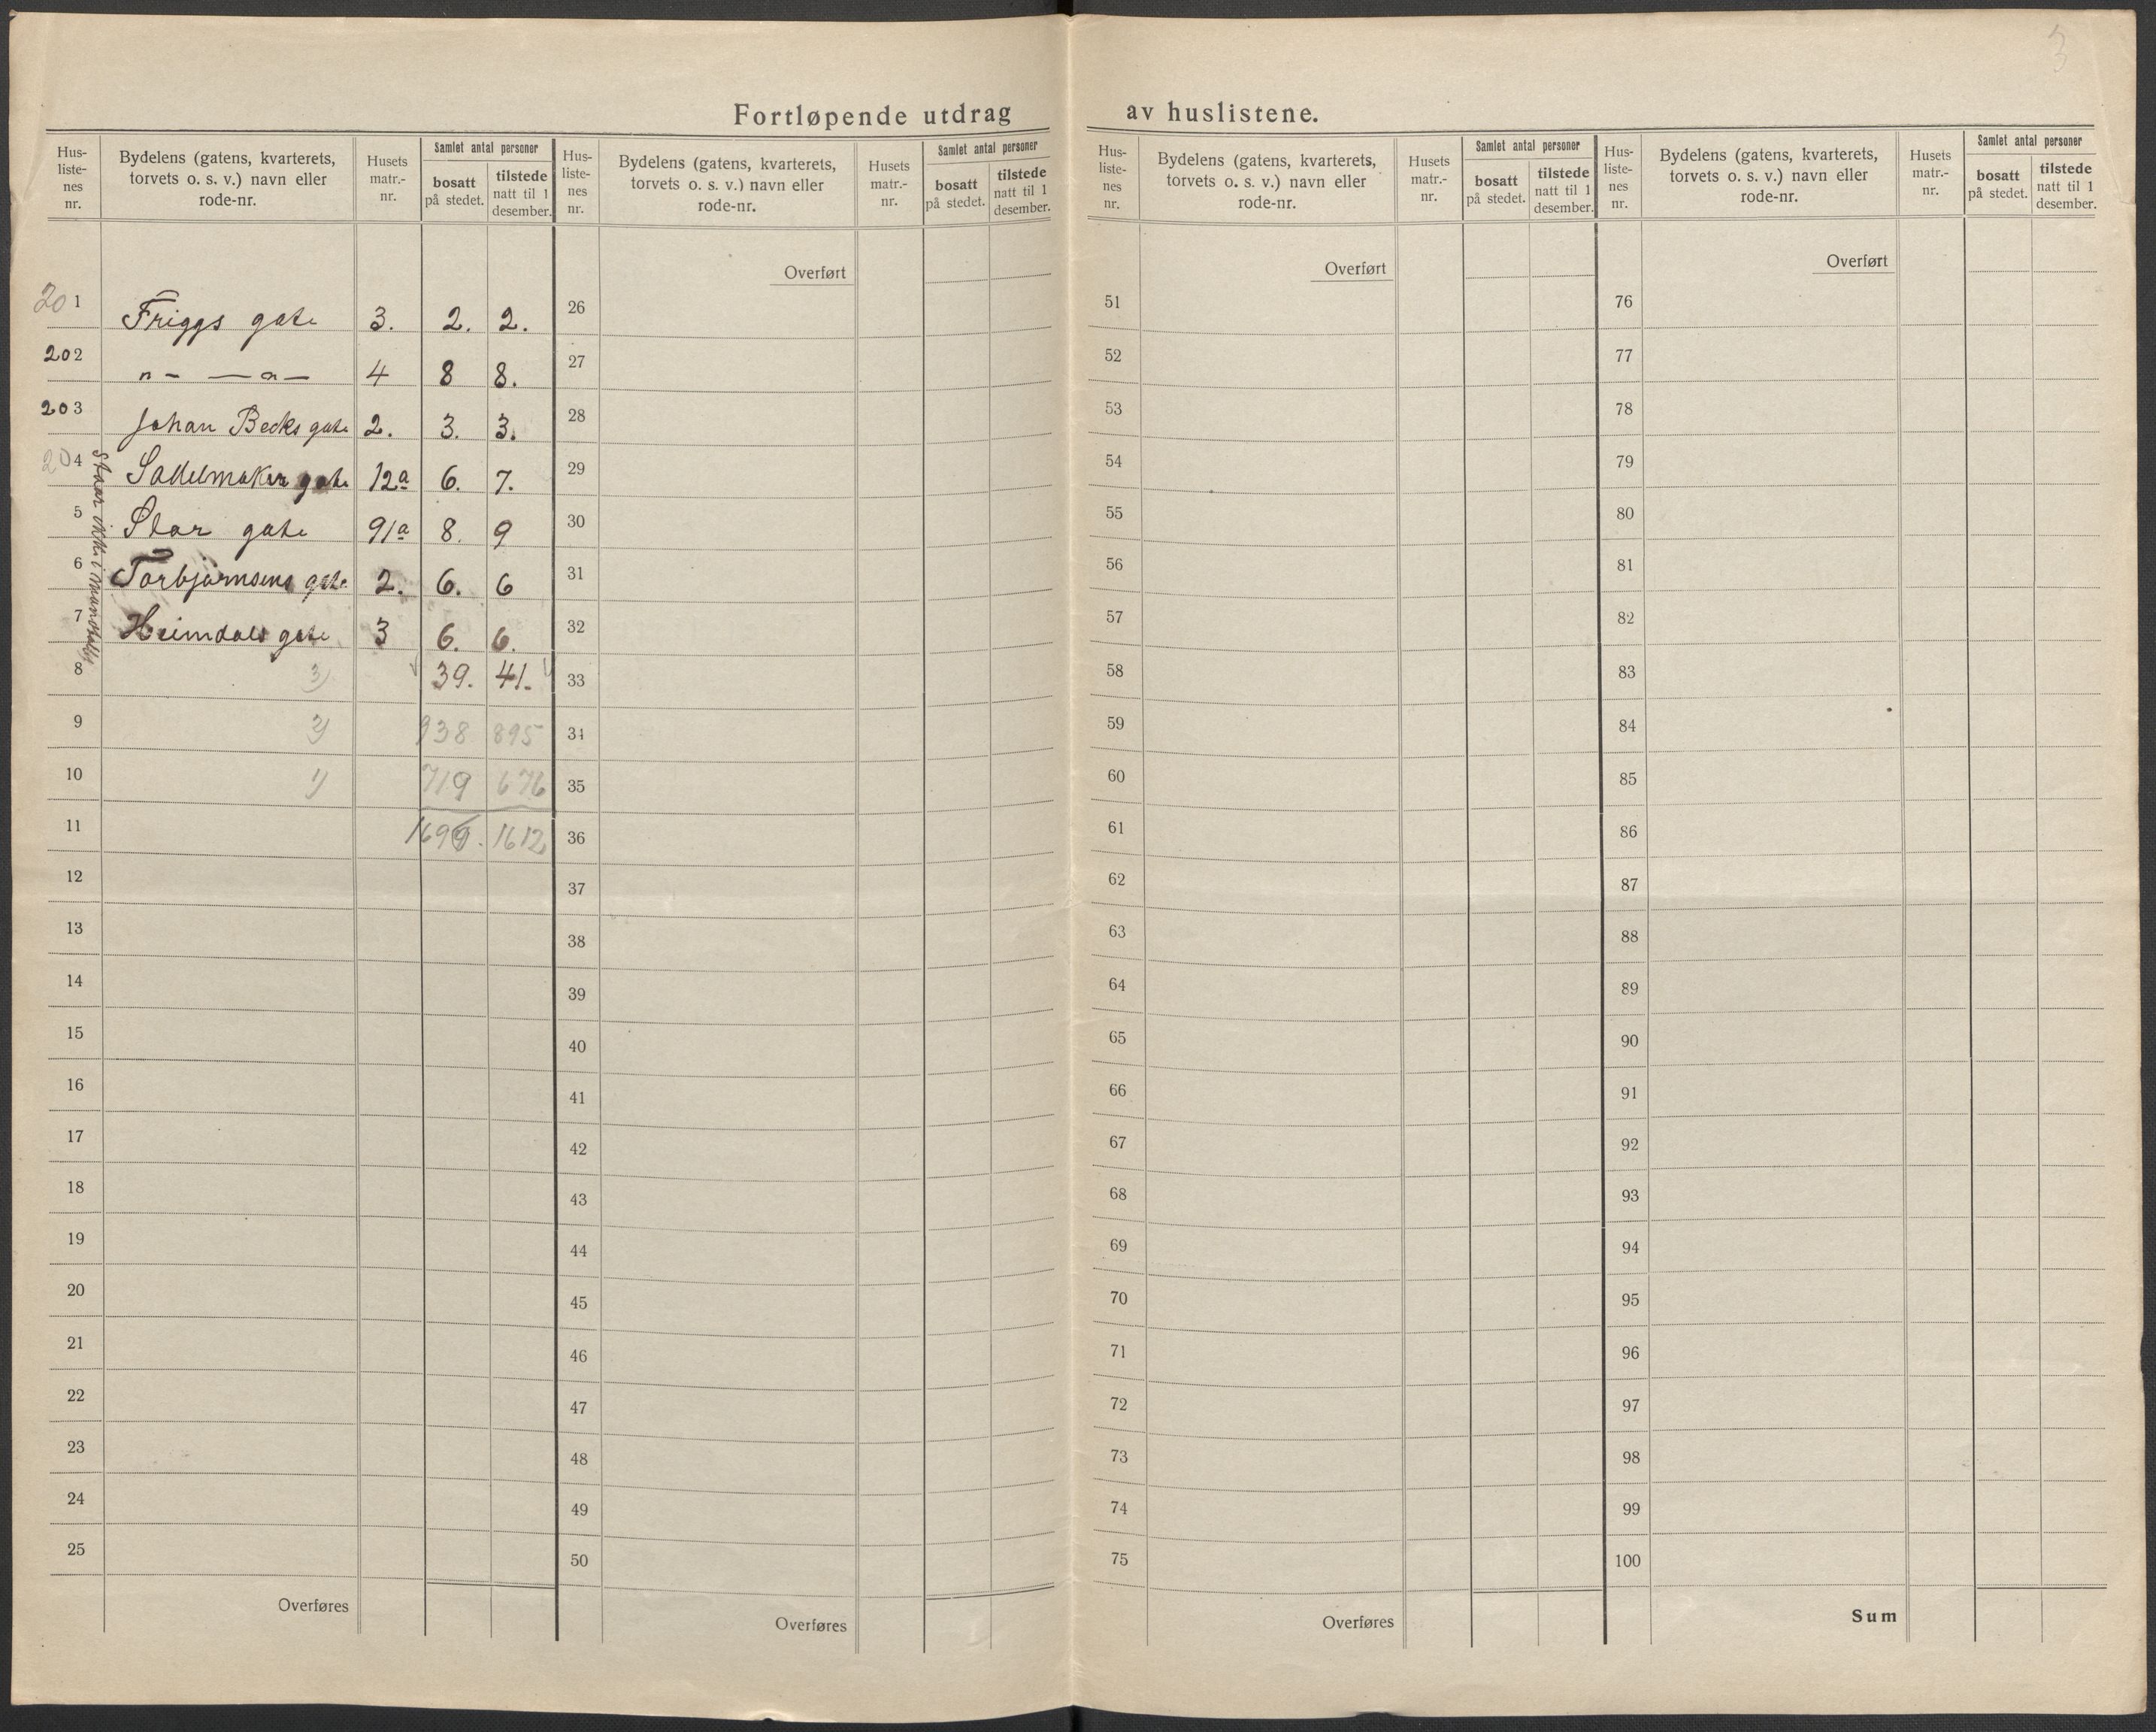 3
Fortløpende utdrag av huslistene.
Hus-liste-nes nr. | Bydelens (gatens, kvarterets, torvets o. s. v.) navn eller rode-nr. | Husets matr.-nr. | Samlet antal personer | bosatt på stedet. | tilstede natt til 1 desember.
Hus-liste-nes nr. | Bydelens (gatens, kvarterets, torvets o. s. v.) navn eller rode-nr. | Husets matr.-nr. | Samlet antal personer | bosatt på stedet. | tilstede natt til 1 desember.
Hus-liste-nes nr. | Bydelens (gatens, kvarterets, torvets o. s. v.) navn eller rode-nr. | Husets matr.-nr. | Samlet antal personer | bosatt på stedet. | tilstede natt til 1 desember.
Hus-liste-nes nr. | Bydelens (gatens, kvarterets, torvets o. s. v.) navn eller rode-nr. | Husets matr.-nr. | Samlet antal personer | bosatt på stedet. | tilstede natt til 1 desember.
201 Friggs gate 3. 2. 2.
202 " — — " — 4 8 8.
203 Johan Becks gate 2. 3. 3.
204 Sadelmaker gate 12a 6. 7.
5 Stor gate 91a 8. 9
6 Torbjørnsens gate 2. 6. 6
7 Heimdals gate 3 6. 6.
Staar ikke i
8 3) 39. 41.
9 2) 938 895
10 1) 719 676
11 1699. 1612
12
13
14
15
16
17
18
19
20
21
22
23
24
25
Overføres
Overført
26
27
28
29
30
31
32
33
34
35
36
37
38
39
40
41
42
43
44
45
46
47
48
49
50
Overføres
Overført
51
52
53
54
55
56
57
58
59
60
61
62
63
64
65
66
67
68
69
70
71
72
73
74
75
Overføres
Overført
76
77
78
79
80
81
82
83
84
85
86
87
88
89
90
91
92
93
94
95
96
97
98
99
100
Sum